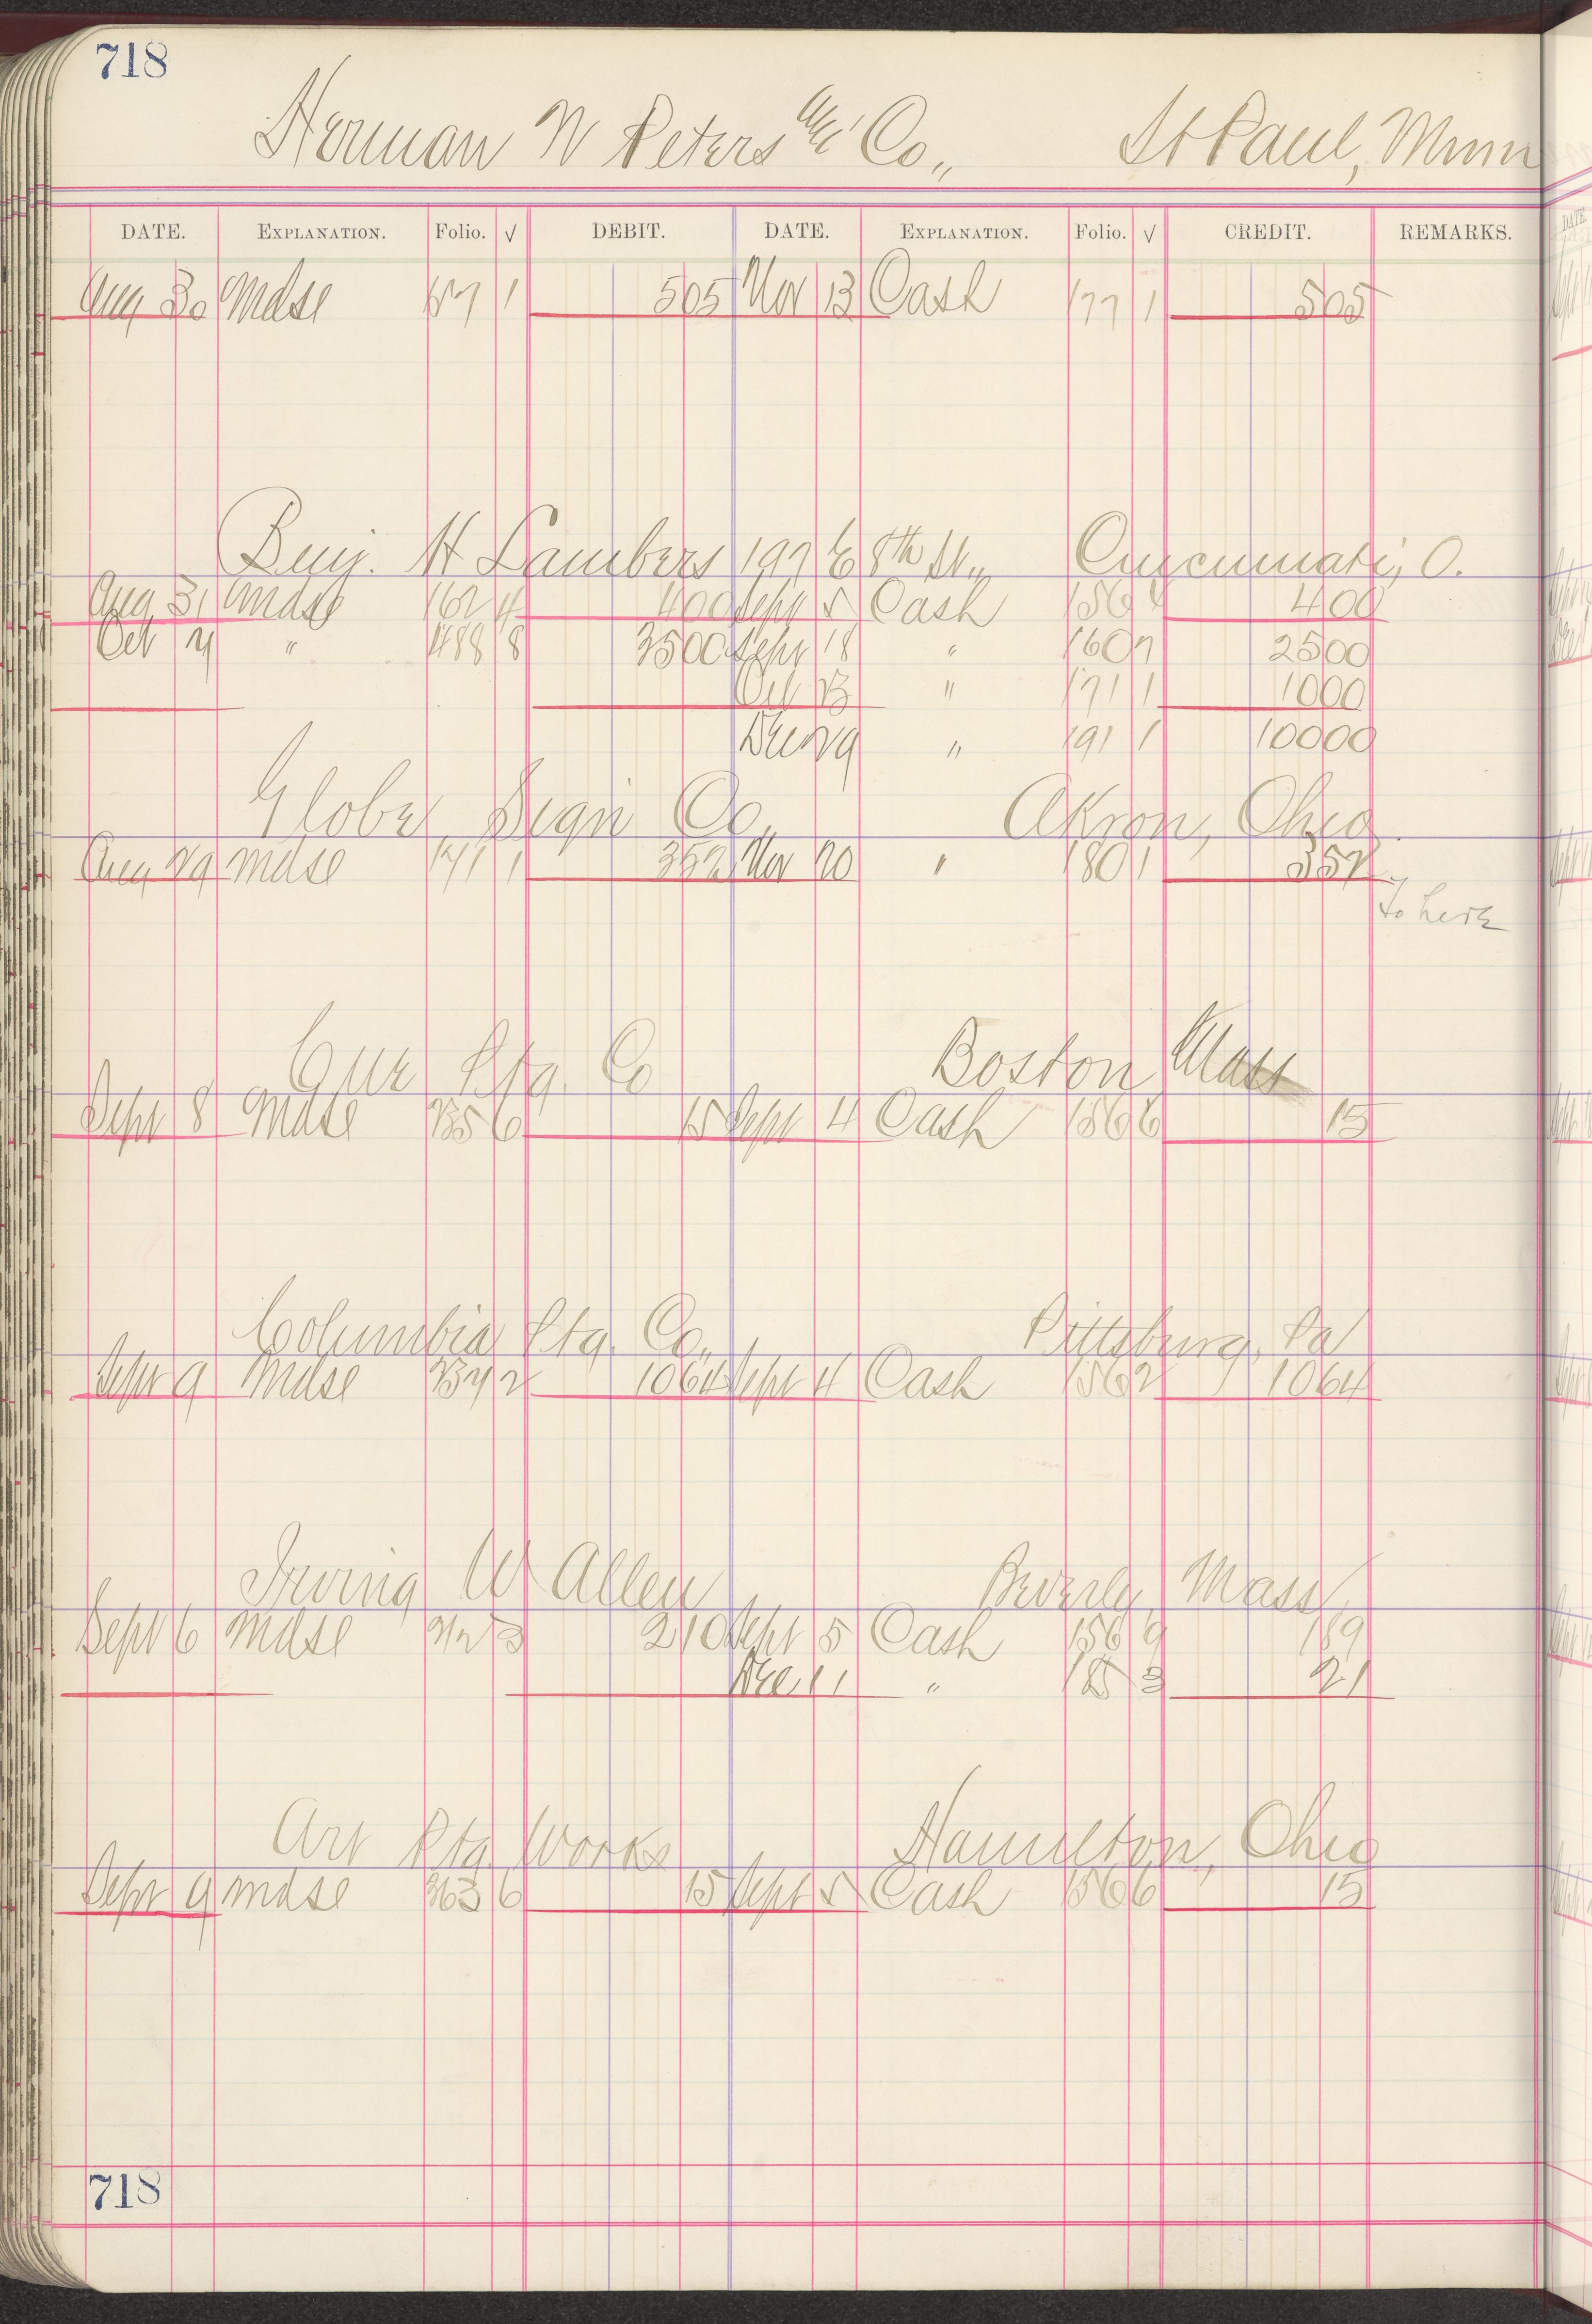 718
Herman W Peters & Co., St Paul, Minn
DATE. EXPLANATION. Folio. √ DEBIT. DATE. EXPLANATION. Folio. √ CREDIT. REMARKS.
Aug 30 Mdse 1 505 Nov 13 Cash 177 1 505
Benj. H Lambers 197 E 8th St., Cincinnati, O.
Aug 31 Mdse 162 4 400 Sept 5 Cash 156 4 400
Oct 4 " 488 8 3500 Sept 18 " 160 7 2500
Oct 13 " 171 1 1000
Dec 29 " 191 1 10000
Globe Sign Co., Akron, Ohio.
Aug 29 Mdse 141 1 352 Nov 20 " 180 1 352
to here
Ptg. Co Boston Mass
Sept 8 Mdse 235 6 15 Sept 4 Cash 156 6 15
Columbia Ptg. Co., Pittsburg, Pa
Sept 9 Mdse 234 2 1064 Sept 4 Cash 156 2 1064
Irving W Allen Beverly, Mass
Sept 6 Mdse 3 210 Sept 5 Cash 156 9 189
Dec 11 " 3 21
Art Ptg. Works Hamilton, Ohio
Sept 9 Mdse 363 6 15 Sept 5 Cash 156 6 15
718